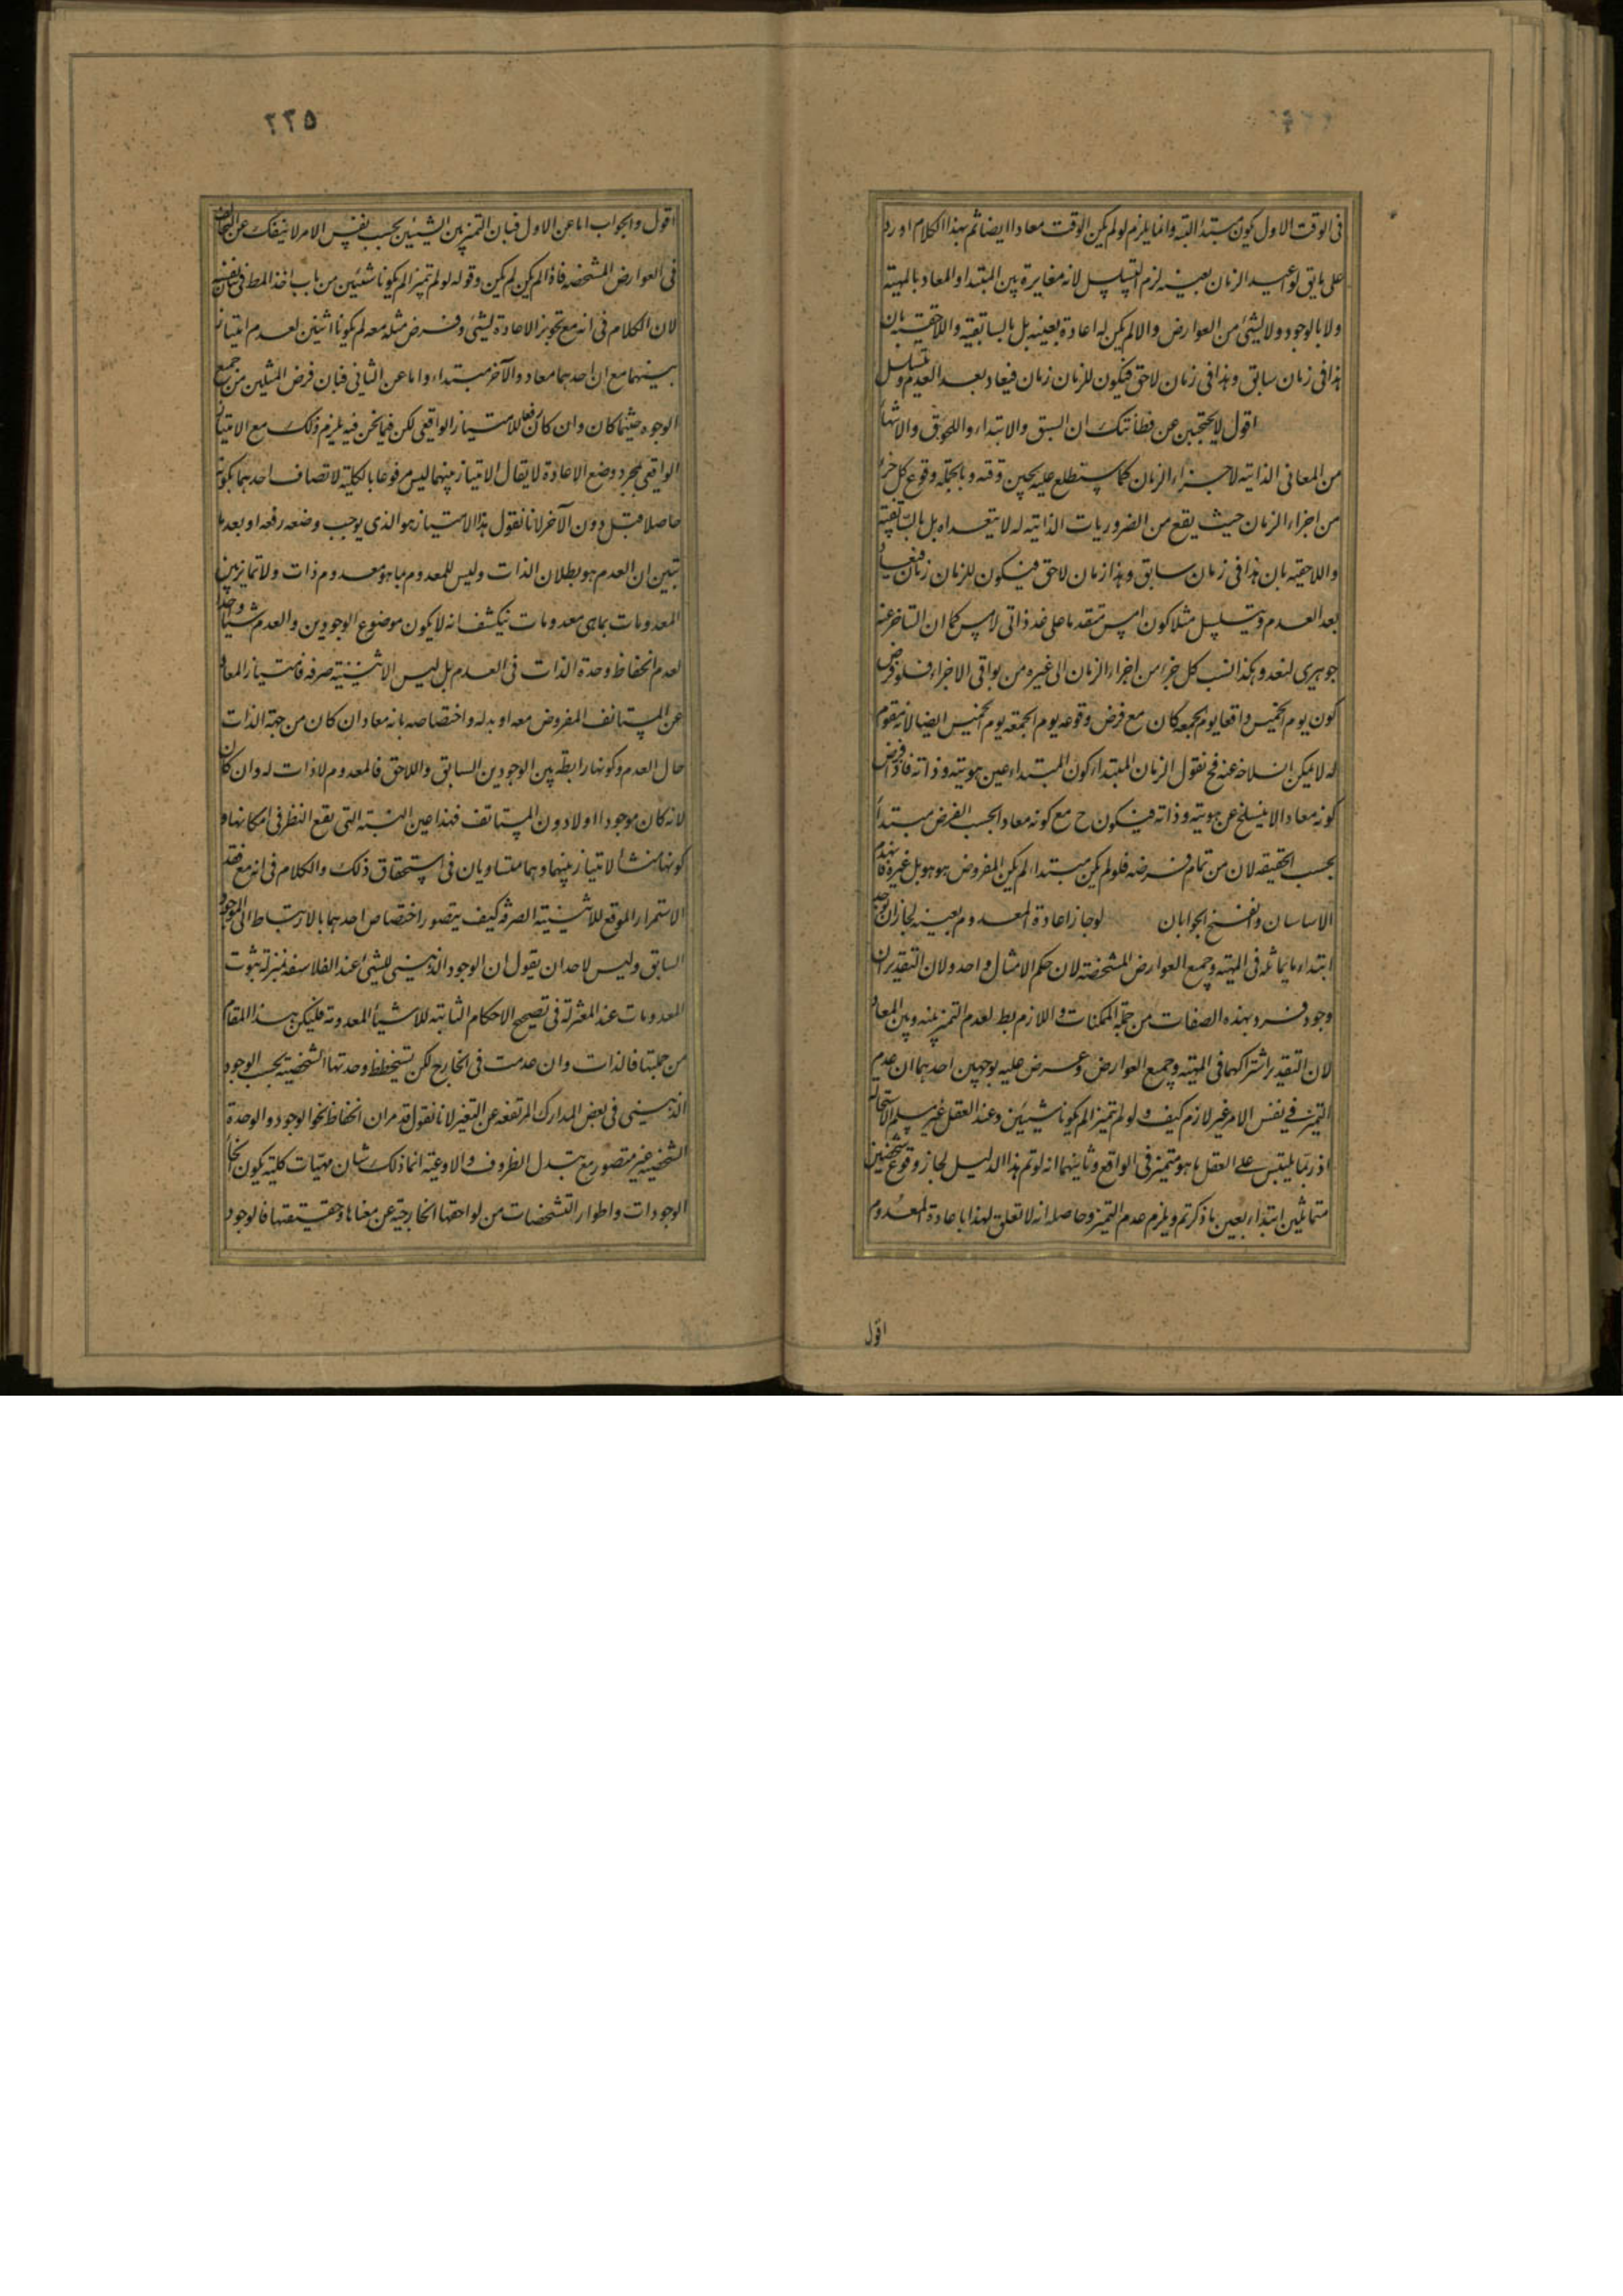 فى الوقت الاول يكون مبتدأ البتة وانما يلزم لو لم يكن الوقت معادا ايضا ثم بهذا الكلام اورد
على ما يق لو اعيد الزمان بعينه لزم التسلسل لانه مغايرة بين المبتدا والمعاد بالمهية
ولا بالوجود ولا بشئ من العوارض والا لم يكن له اعادة بعينه بل بالسابقية واللاحقية بان
هذا فى زمان سابق وهذا فى زمان لاحق فيكون للزمان زمان فيعاد بعد العدم وتسلسل
اقول لا يحتجبن عن فطانتك ان السبق والابتداء واللحوق والانتهاء
من المعانى الذاتية لاجزاء الزمان كما ستطلع عليه بحين وقته وبالجملة وقوع كل جزء
من اجزاء الزمان حيث يقع من الضروريات الذاتية له لا يتعداه بل بالسابقية
واللاحقية بان هذا فى زمان سابق وهذا زمان لاحق فيكون للزمان زمان فيعاد
بعد العدم ويتسلسل مثلا كون امس متقدما على غد ذاتى لامس كما ان التاخر عنه
جوهرى لغد وهكذا نسب كل جزء من اجزاء الزمان الى غيره من بواقى الاجزاء فلو فرض
كون يوم الخميس واقعا يوم الجمعه كان مع فرض وقوعه يوم الجمعة يوم الخميس ايضا لانه مقوم
له لا يمكن انسلاخه عنه فح نقول الزمان المبتداء كون المبتداء عين هويته وذاته فاذا فرض
كونه معادا لا ينسلخ عن هويته وذاته فيكون ح مع كونه معادا بحسب الفرض مبتدأ
بحسب الحقيقه لان من تمام فرضه فلو لم يكن مبتداء لم يكن المفروض هو هو بل غيره فانهدم
الاساسان وانفسخ الجوابان لو جاز اعادة المعدوم بعينه لجاز ان يوجد
ابتداء ما يماثله فى المهية وجميع العوارض المشخصة لان حكم الامثال واحد ولان التقدير ان
وجود فرد بهذه الصفات من جملة الممكنات واللازم بط لعدم التميز بينه وبين المعاد
لان التقدير اشتراكهما فى المهية وجميع العوارض وعرض عليه بوجهين احدهما ان عدم
التميز فى نفس الامر غير لازم كيف ولو لم تميزا لم يكونا شيئين وعند العقل غير مسلم الاستحالة
اذ ربما يلتبس على العقل ما هو متميز فى الواقع وثانيهما انه لو تم هذا الدليل لجاز وقوع شخصين
متماثلين ابتداء بعين ما ذكرتم ويلزم عدم التميز وحاصله انه لا تعلق لهذا باعادة المعدوم
اقول
٢٢٥
اقول والجواب اما عن الاول فبان التميز بين الشيئين بحسب نفس الامر لا ينفك عن التخالف
فى العوارض المشخصه فاذا لم يكن لم يكن وقوله لو لم تميزا لم يكونا شيئين من باب اخذ المط فى
لان الكلام فى انه مع تجويز الاعادة لشئ وفرض مثله معه لم يكونا اثنين لعدم امتياز
بينهما مع ان احدهما معاد والآخر مبتداء واما عن الثانى فبان فرض المثلين من جميع
الوجوه حيثما كان وان كان رفعا للامتياز الواقعى لكن فيما نحن فيه يلزم ذلك مع الامتياز
الواقعى بمجرد وضع الاعادة لا يقال الامتياز بينهما ليس مرفوعا بالكلية لاتصاف احدهما بكونه
حاصلا قبل دون الآخر لانا نقول هذا الامتياز هو الذى يوجب وضعه رفعه او بعد ما
تبين ان العدم هو بطلان الذات وليس للمعدوم بما هو معدوم ذات ولا تمايز بين
المعدومات بما هى معدومات ينكشف انه لا يكون موضوع الوجودين والعدم شيئا واحدا
لعدم انحفاظ وحدة الذات فى العدم بل ليس الا اثنينية صرفه فامتياز المعاد
عن المستانف المفروض معه او بدله واختصاصه بانه معاد ان كان من جهة الذات
حال العدم وكونها رابطة بين الوجودين السابق واللاحق فالمعدوم لا ذات له وان كان
لانه كان موجودا اولا دون المستانف فهذا عين النسبة التى يقع النظر فى امكانها و
كونها منشأ لامتياز بينهما وهما متساويان فى استحقاق ذلك والكلام فى انه مع فقد
الاستمرار الموقع للاثنينية الصرفه كيف يتصور اختصاص احدهما بالارتباط الى الموجود
السابق وليس لاحد ان يقول ان الوجود الذهنى للشئ عند الفلاسفه بمنزلة ثبوت
المعدومات عند المعتزلة فى تصحيح الاحكام الثابتة للاشياء المعدومة فليكن هذا المقام
من جملتها فالذات وان عدمت فى الخارج لكن تستحفظ وحدتها الشخصية بحسب الوجود
الذهنى فى بعض المدارك المرتفعه عن التغير لانا نقول قد مر ان انحفاظ نحو الوجود والوحدة
الشخصية غير متصور مع تبدل الظروف والاوعية انما ذلك شان مهيات كلية يكون انحاء
الوجودات واطوار التشخصات من لواحقها الخارجية عن معناها وحقيقتها فالوجود